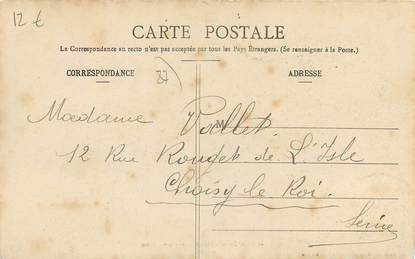 12 €
CARTE POSTALE
La Correspondance au recto n'est pas acceptée par tous les Pays Étrangers. (Se renseigner à la Poste.)
CORRESPONDANCE
87
ADRESSE
Madame M Viallet
12 Rue Rouget de L'Isle
Choisy le Roi.
Seine